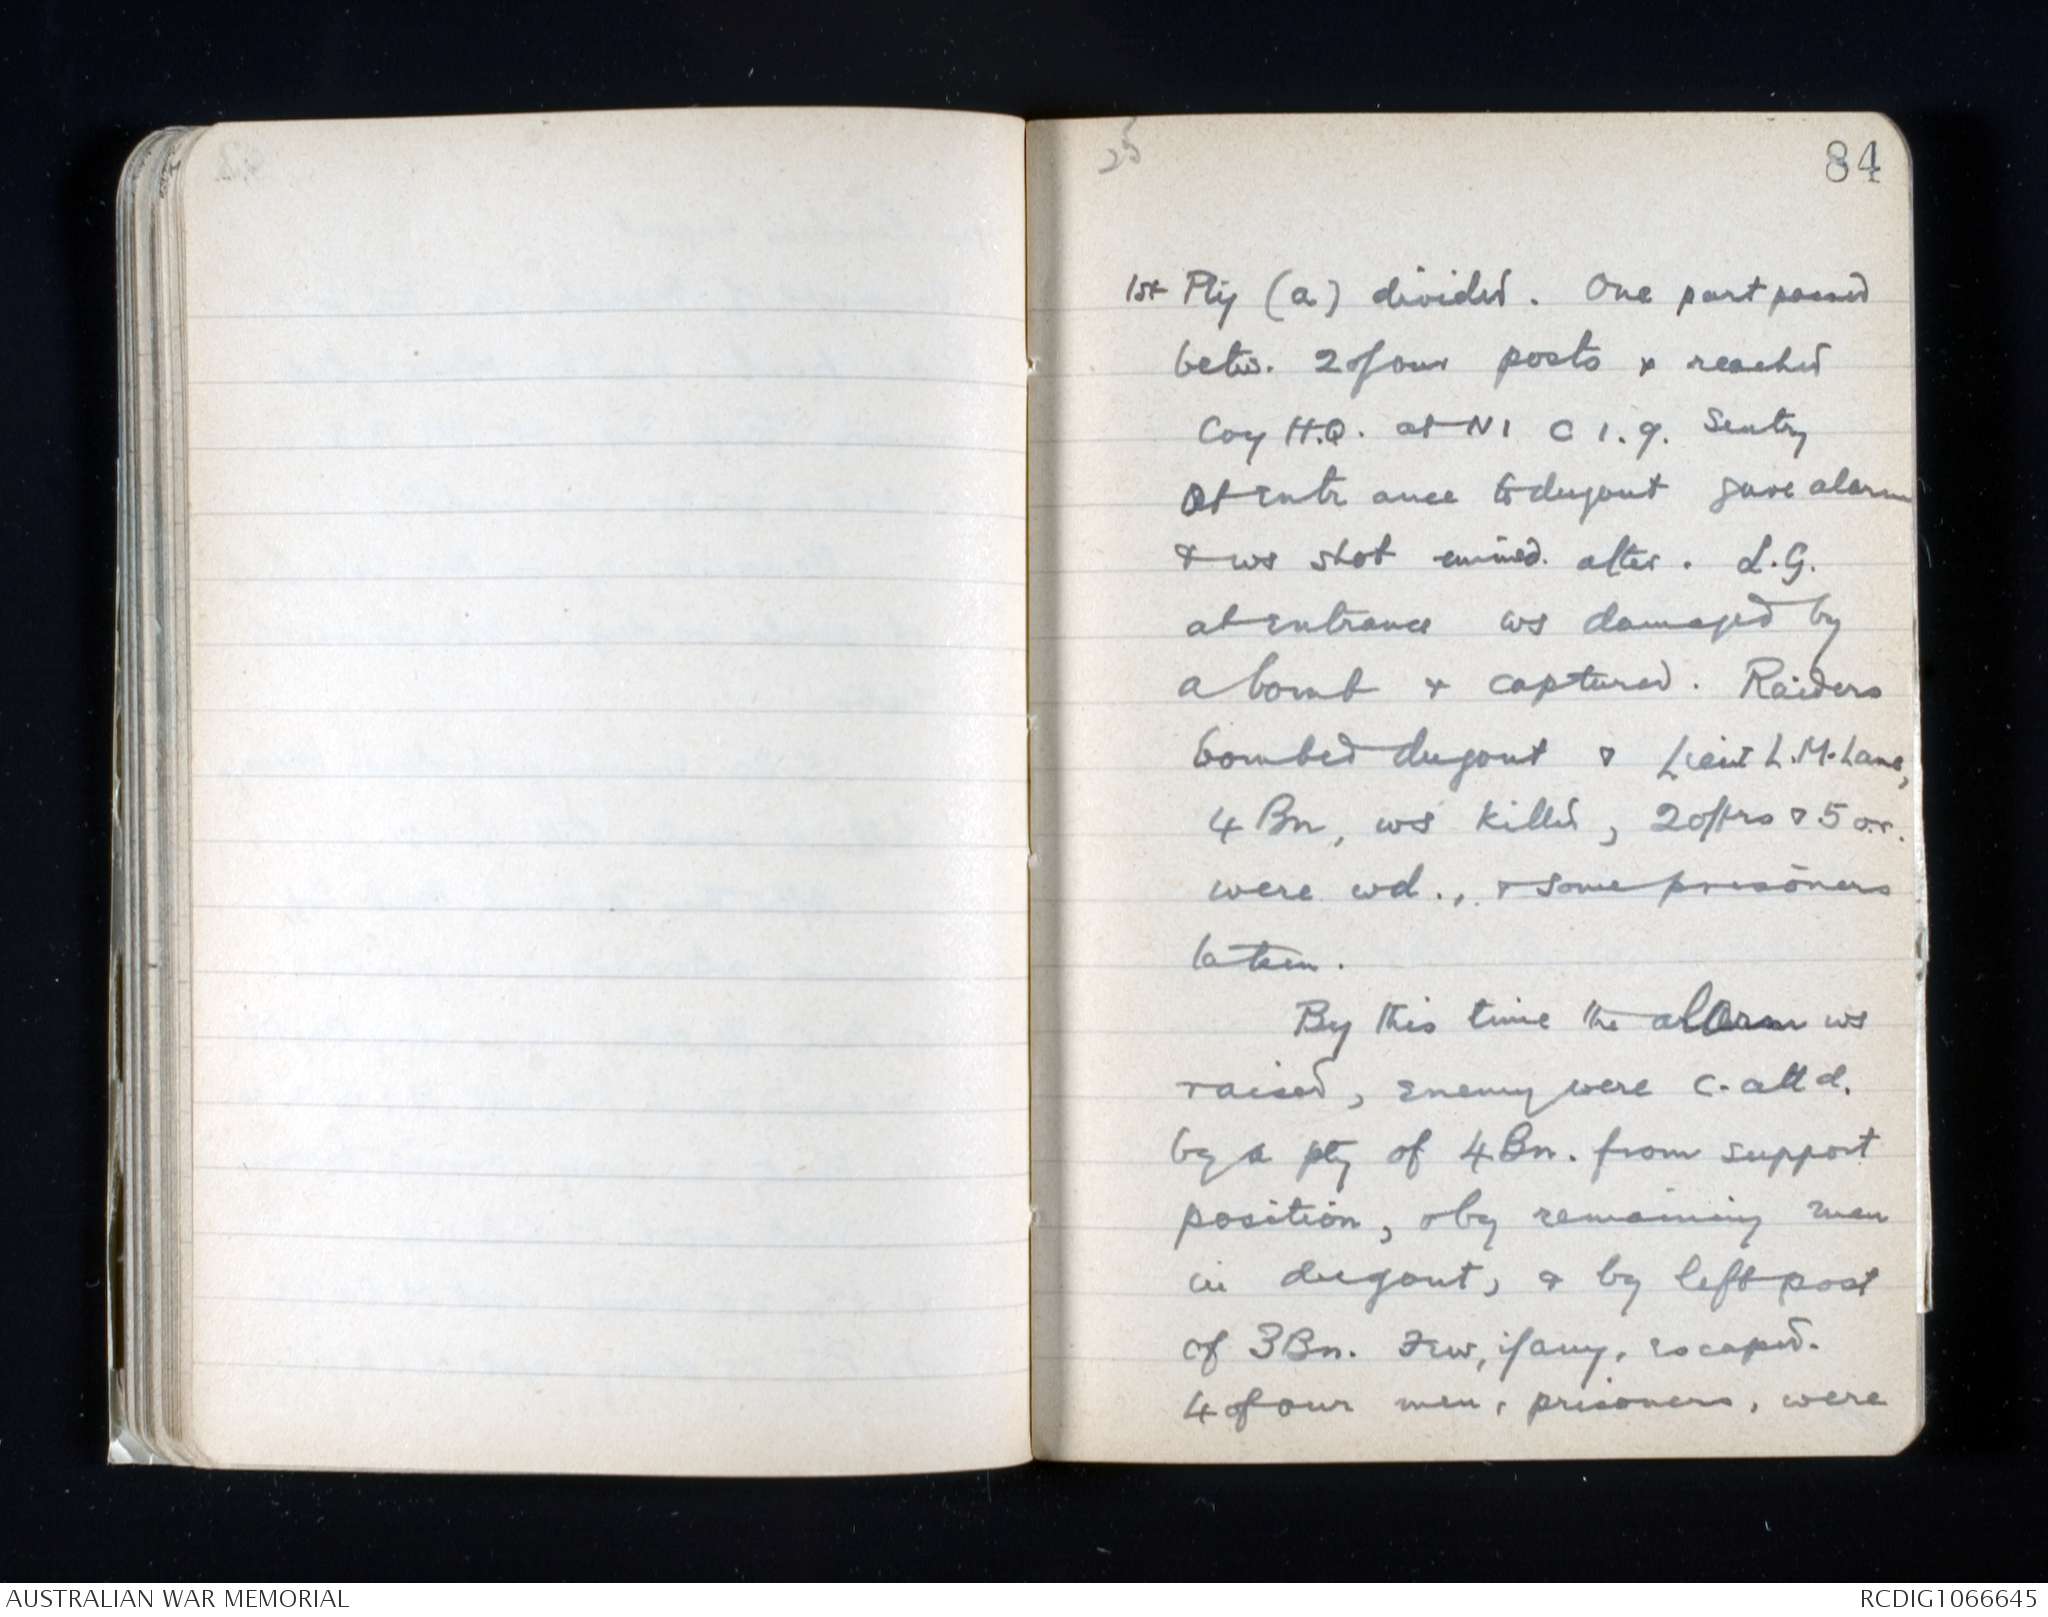 25
84
1st Pty (a) divided. One part passed
betw. 2 of our posts & reached
Coy H.Q. at N1 C 1.9. Sentry
at entrance to dugout gave alarm
& ws shot immed. after. L.G.
at entrance ws damaged by
a bomb & captured. Raiders
bombed dugout & Lieut L.M. Lane,
4 Bn, ws killed, 2 offrs & 5 o.r.
were wd., & some prisoners
taken.
By this time the alarm ws
raised, enemy were c-attd.
by a pty of 4 Bn. from support
position, & by remaining men
in dugout, & by left post
of 3 Bn. Few, if any, escaped.
4 of our men, prisoners, were
AUSTRALIAN WAR MEMORIAL
RCDIG1066645